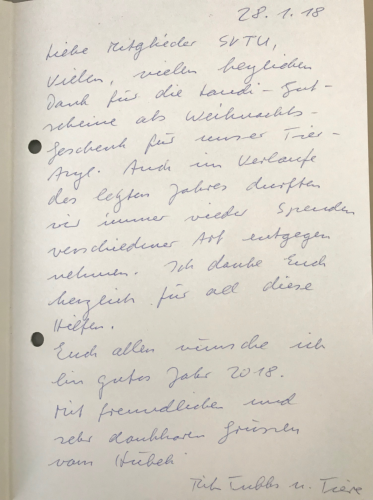 28.1.18
Liebe Mitglieder SVTU,
Vielen, vielen herzlichen
Dank für die Landi-Gut-
scheine als Weihnachts-
Geschenk für unser Tier-
Asyl. Auch im Verlaufe
des letzten Jahres durften
wir immer wieder Spenden
verschiedener Art entgegen
nehmen. Ich danke Euch
herzlich für all diese
Hilfen.
Euch allen wünsche ich
ein gutes Jahr 2018.
Mit freundlichen und
sehr dankbaren Grüssen
vom Hübeli
u. Tiere